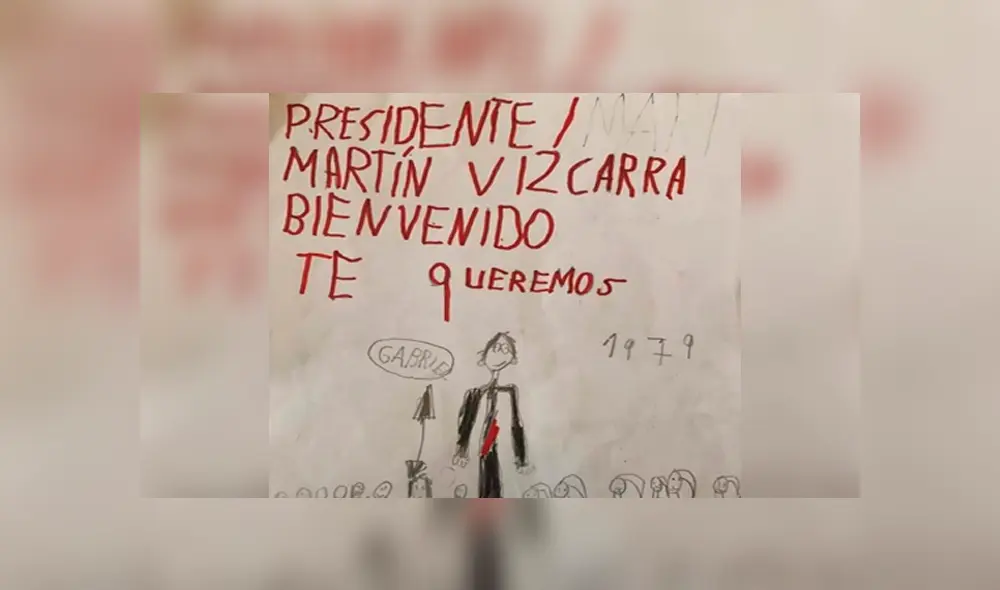 PRESIDENTE / MAT
MARTÍN VIZCARRA
BIENVENIDO
TE QUEREMOS
GABRIEL
1979